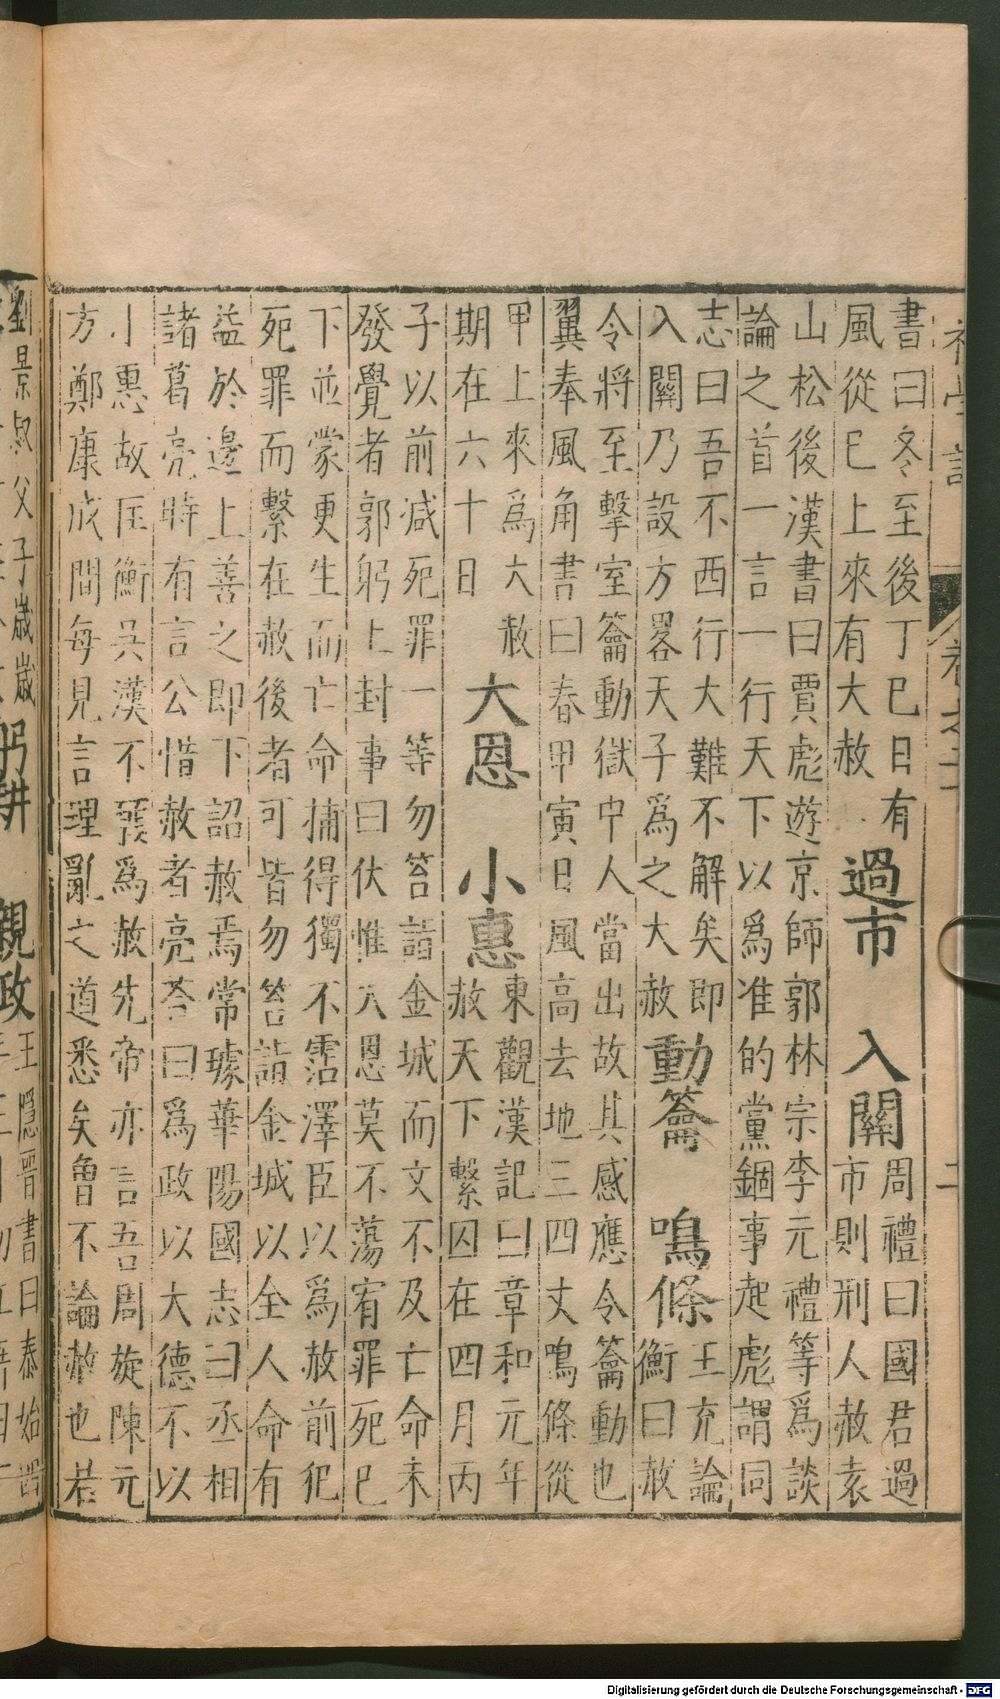 學記 卷之二 二
書曰冬至後丁巳日有
風從巳上來有大赦
過市 入關
周禮曰國君過
市則刑人赦袁
山松後漢書曰賈彪遊京師郭林宗李元禮等爲談
論之首一言一行天下以爲准的黨錮事起彪謂同
志曰吾不西行大難不解矣即
入關乃設方畧天子爲之大赦
動籥 鳴條
王充論
衡曰赦
令將至擊室籥動獄中人當出故其感應令籥動也
翼奉風角書曰春甲寅日風高去地三四丈鳴條從
甲上來爲大赦
期在六十日
大恩 小惠
東觀漢記曰章和元年
赦天下繫囚在四月丙
子以前减死罪一等勿笞詣金城而文不及亡命未
發覺者郭躬上封事曰伏惟大恩莫不蕩宥罪死已
下並蒙更生而亡命捕得獨不霑澤臣以爲赦前犯
死罪而繫在赦後者可皆勿笞詣金城以全人命有
益於邊上善之即下詔赦焉常璩華陽國志曰丞相
諸葛亮時有言公惜赦者亮荅曰爲政以大德不以
小惠故匡衡吳漢不願爲赦先帝亦言吾周旋陳元
方鄭康成間每見言理亂之道悉矣曾不論赦也若
劉景叔父子歲歲
躬耕 親政
王隱晉書曰泰始四
Digitalisierung gefördert durch die Deutsche Forschungsgemeinschaft - DFG